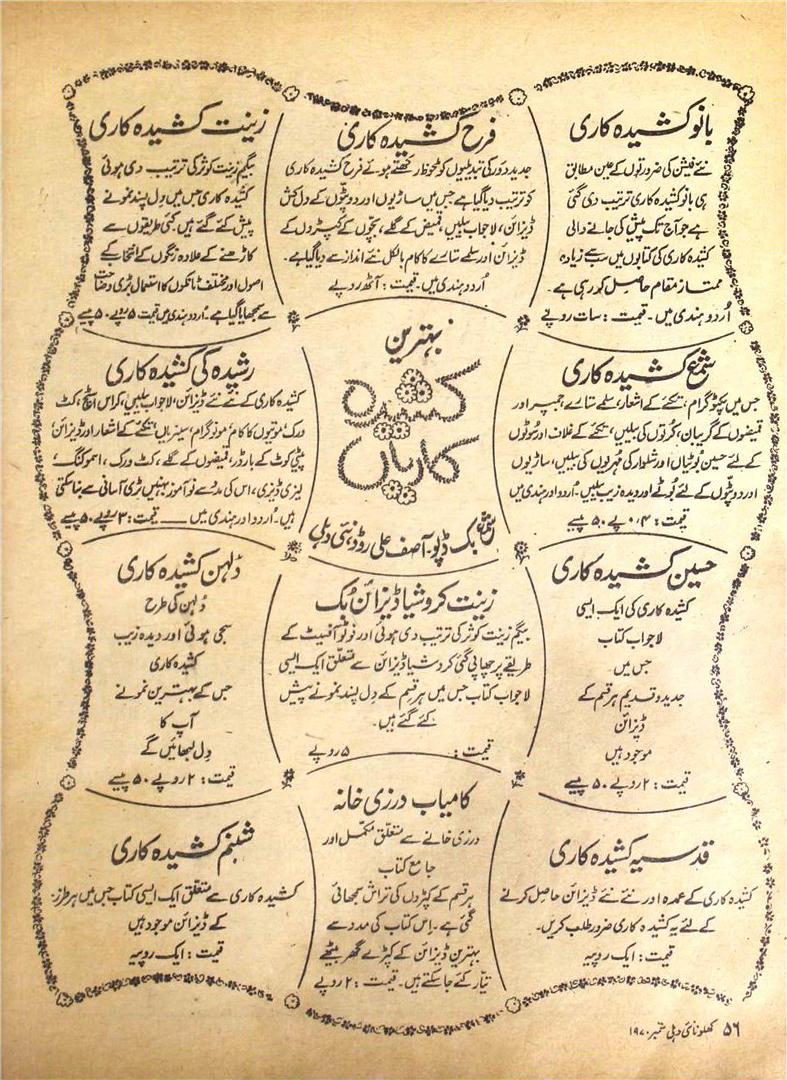 بانو کشیدہ کاری
نئے فیشن کی ضرورتوں کے عین مطابق
ہی بانو کشیدہ کاری ترتیب دی گئی
ہے جو آج تک پیش کی جانے والی
کشیدہ کاری کی کتابوں میں سب سے زیادہ
ممتاز مقام حاصل کر رہی ہے۔
اُردو ہندی میں۔ قیمت: سات روپے
فرح کشیدہ کاری
جدید دور کی تبدیلیوں کو ملحوظ رکھتے ہوئے فرح کشیدہ کاری
کو ترتیب دیا گیا ہے جس میں ساڑیوں اور دوپٹوں کے دل کش
ڈیزائن، لاجواب بیلیں، قمیض کے گلے، بچوں کے کپڑوں کے
ڈیزائن اور سلمے ستارے کا کام بالکل نئے انداز سے دیا گیا ہے۔
اُردو ہندی میں۔ قیمت: آٹھ روپے
زینت کشیدہ کاری
بیگم زینت کوثر کی ترتیب دی ہوئی
کشیدہ کاری جس میں دل پسند نمونے
پیش کئے گئے ہیں۔ کئی طریقوں سے
کاڑھنے کے علاوہ رنگوں کے انتخاب کے
اصول اور مختلف ٹانکوں کا استعمال بڑی وضاحت
سے سمجھایا گیا ہے۔ اُردو ہندی میں قیمت ۵ روپے ۵۰ پیسے
شمع کشیدہ کاری
جس میں پکٹوگرام، تکئے کے اشعار، سلمے ستارے، جمپر اور
قمیضوں کے گریبان، کُرتوں کی بیلیں، تکئے کے غلاف اور سُوٹوں
کے لئے حسین بُوٹیاں اور شلوار کی مہریوں کی بیلیں، ساڑیوں
اور دوپٹوں کے لئے بُوٹے اور دیدہ زیب بیلیں۔ اُردو اور ہندی میں
قیمت: ۴ روپے ۵۰ پیسے
بہترین
کشیدہ
کاریاں
شمع بک ڈپو۔ آصف علی روڈ، نئی دہلی
رشیدہ کی کشیدہ کاری
کشیدہ کاری کے نئے نئے ڈیزائن، لاجواب بیلیں، کراس اسٹچ، کٹ
ورک، موتیوں کا کام، مونوگرام، سینریاں، تکئے کے اشعار اور ڈیزائن،
پیٹی کوٹ کے بارڈر، قمیضوں کے گلے، کٹ ورک، اسموکنگ،
لیزی ڈیزی، اس کی مدد سے نو آموز بہنیں بڑی آسانی سے بنا سکتی
ہیں۔ اُردو اور ہندی میں ـــــ قیمت: ۳ روپے ۵۰ پیسے
حسین کشیدہ کاری
کشیدہ کاری کی ایک ایسی
لاجواب کتاب
جس میں
جدید و قدیم ہر قسم کے
ڈیزائن
موجود ہیں
قیمت: ۲ روپے ۵۰ پیسے
زینت کروشیا ڈیزائن بُک
بیگم زینت کوثر کی ترتیب دی ہوئی اور فوٹو آفسیٹ کے
طریقے پر چھاپی گئی کروشیا ڈیزائن سے متعلق ایک ایسی
لاجواب کتاب جس میں ہر قسم کے دل پسند نمونے پیش
کئے گئے ہیں۔
قیمت: ۵ روپے
دُلہن کشیدہ کاری
دُلہن کی طرح
سجی ہوئی اور دیدہ زیب
کشیدہ کاری
جس کے بہترین نمونے
آپ کا
دل لبھائیں گے
قیمت: ۲ روپے ۵۰ پیسے
قدسیہ کشیدہ کاری
کشیدہ کاری کے عمدہ اور نئے نئے ڈیزائن حاصل کرنے
کے لئے یہ کشیدہ کاری ضرور طلب کریں۔
قیمت: ایک روپیہ
کامیاب درزی خانہ
درزی خانے سے متعلق مکمل اور
جامع کتاب
ہر قسم کے کپڑوں کی تراش سمجھائی
گئی ہے۔ اس کتاب کی مدد سے
بہترین ڈیزائن کے کپڑے گھر بیٹھے
تیار کئے جا سکتے ہیں۔ قیمت: ۲ روپے
شبنم کشیدہ کاری
کشیدہ کاری سے متعلق ایک ایسی کتاب جس میں ہر طرز
کے ڈیزائن موجود ہیں
قیمت: ایک روپیہ
۵۶ کھلونا نئی دہلی ستمبر ۱۹۷۰